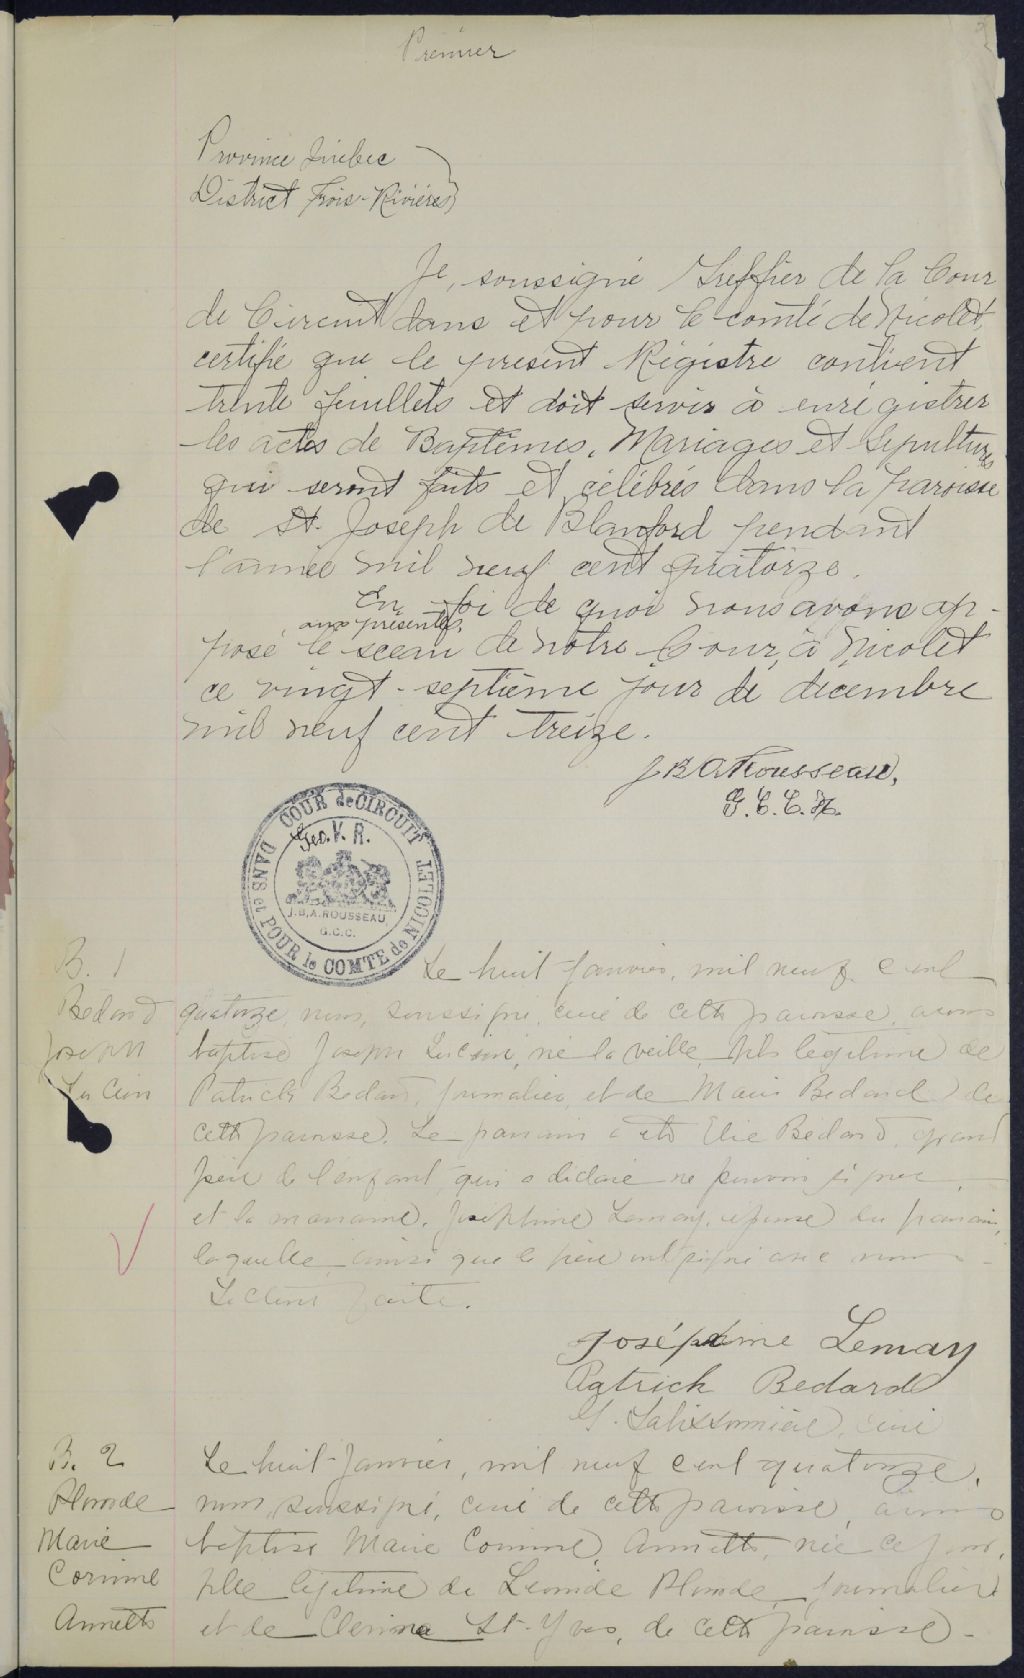 Premier
Province Québec
District Trois-Rivières
Je, soussigné Greffier de la Cour
de Circuit dans et pour le comté de Nicolet,
certifie que le present Régistre contient
trente feuillets et doit servir à enrégistrer
les actes de Baptêmes, Mariages et Sépultures
qui seront faits et célébrés dans la paroisse
de St. Joseph de Blanford pendant
l'année mil neuf cent quatorze.
En foi de quoi nous avons ap-
aux présentes,
posé le sceau de notre Cour, à Nicolet
ce vingt-septième jour de décembre
mil neuf cent treize.
J.B.A. Rousseau,
G.C.C.N.
COUR de CIRCUIT
DANS et POUR le COMTE de NICOLET
Geo. V. R.
J.B.A. ROUSSEAU,
G.C.C.
B. 1
Bedard
Joseph
Lucien
Le huit Janvier, mil neuf cent
quatorze, nous, soussigné, curé de cette paroisse, avons
baptisé Joseph Lucien, né la veille, fils légitime de
Patrick Bedard, journalier, et de Marie Bedard de
cette paroisse. Le parrain a été Elie Bedard, grand
père de l'enfant, qui a déclaré ne pouvoir signer,
et la marraine, Joséphine Lemay, épouse du parrain,
laquelle ainsi que le père ont signé avec nous
Lecture faite.
Joséphine Lemay
Patrick Bedard
curé
B. 2
Plourde
Marie
Corinne
Annette
Le huit Janvier, mil neuf cent quatorze,
nous, soussigné, curé de cette paroisse, avons
baptisé Marie Corinne Annette, née ce jour,
fille légitime de Léonide Plourde, journalier
et de Clerina St-Yves, de cette paroisse.